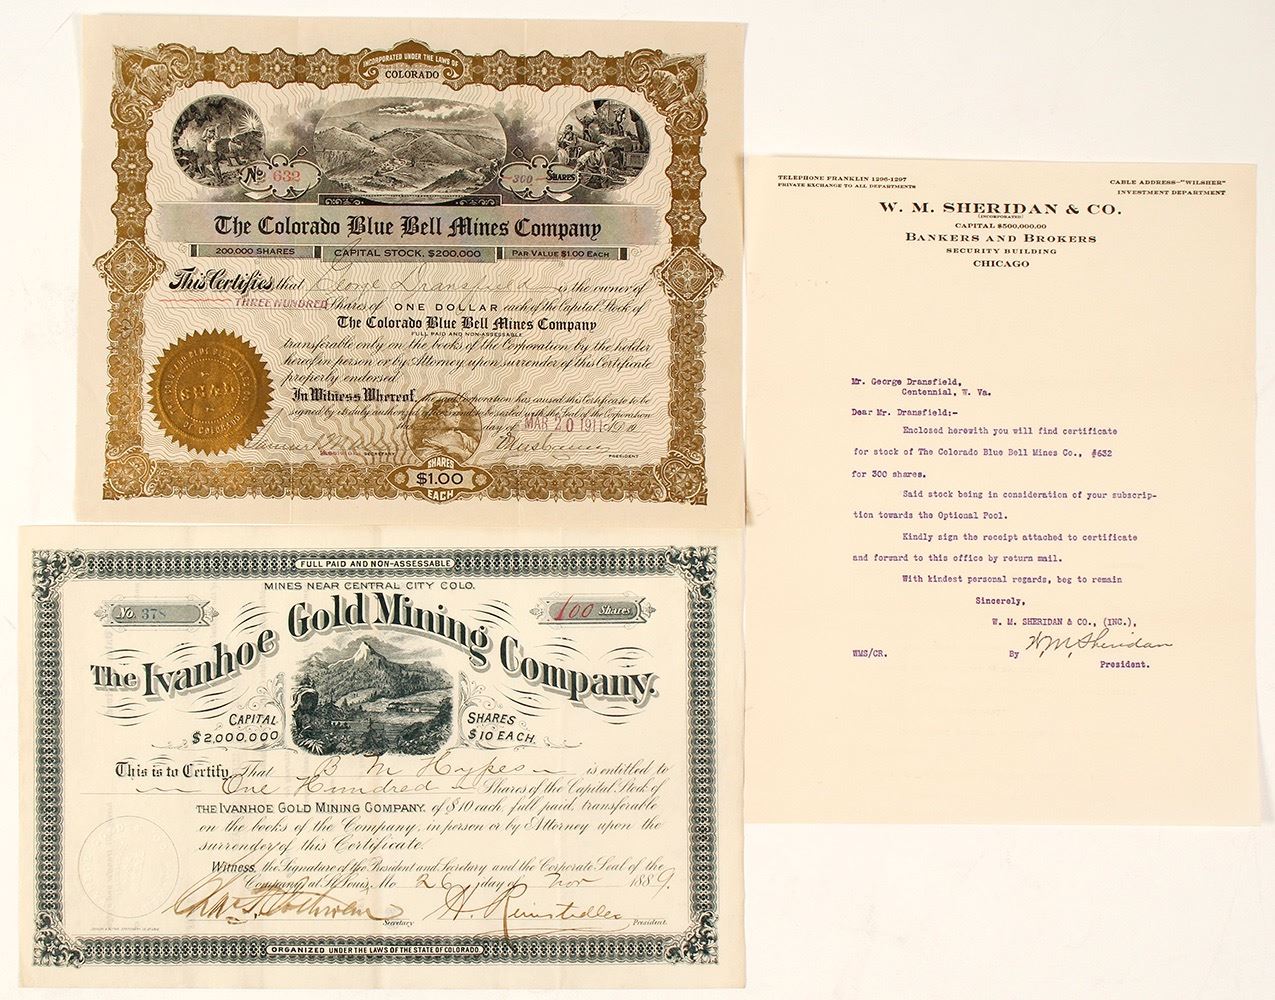 INCORPORATED UNDER THE LAWS OF
COLORADO
No. 632
300 SHARES
The Colorado Blue Bell Mines Company
200.000 SHARES CAPITAL STOCK, $200,000 PAR VALUE $1.00 EACH
This Certifies that George Dransfield is the owner of
THREE HUNDRED Shares of ONE DOLLAR each of the Capital Stock of
The Colorado Blue Bell Mines Company
FULL PAID AND NON-ASSESSABLE
transferable only on the books of the Corporation by the holder
hereof in person or by Attorney upon surrender of this Certificate
properly endorsed.
In Witness Whereof, the said Corporation has caused this Certificate to be
signed by its duly authorized officers and to be sealed with the Seal of the Corporation
this day of MAR 20 1911
SECRETARY
PRESIDENT
SHARES
$1.00
EACH
FULL PAID AND NON-ASSESSABLE
MINES NEAR CENTRAL CITY COLO.
No. 378
100 Shares
The Ivanhoe Gold Mining Company.
CAPITAL
$2,000,000
SHARES
$10 EACH.
This is to Certify That B M Hypes is entitled to
One Hundred Shares of the Capital Stock of
THE IVANHOE GOLD MINING COMPANY, of $10 each, full paid, transferable
on the books of the Company, in person or by Attorney upon the
surrender of this Certificate.
Witness, the Signature of the President and Secretary and the Corporate Seal of the
Company at St. Louis, Mo 26 day of Nov 1889.
Secretary
President.
ORGANIZED UNDER THE LAWS OF THE STATE OF COLORADO.
TELEPHONE FRANKLIN 1296-1297
PRIVATE EXCHANGE TO ALL DEPARTMENTS
CABLE ADDRESS-"WILSHER"
INVESTMENT DEPARTMENT
W. M. SHERIDAN & CO.
(INCORPORATED)
CAPITAL $500,000.00
BANKERS AND BROKERS
SECURITY BUILDING
CHICAGO
Mr. George Dransfield,
Centennial, W. Va.
Dear Mr. Dransfield:-
Enclosed herewith you will find certificate
for stock of The Colorado Blue Bell Mines Co., #632
for 300 shares.
Said stock being in consideration of your subscrip-
tion towards the Optional Pool.
Kindly sign the receipt attached to certificate
and forward to this office by return mail.
With kindest personal regards, beg to remain
Sincerely,
W. M. SHERIDAN & CO., (INC.),
WMS/CR. By W. M. Sheridan
President.